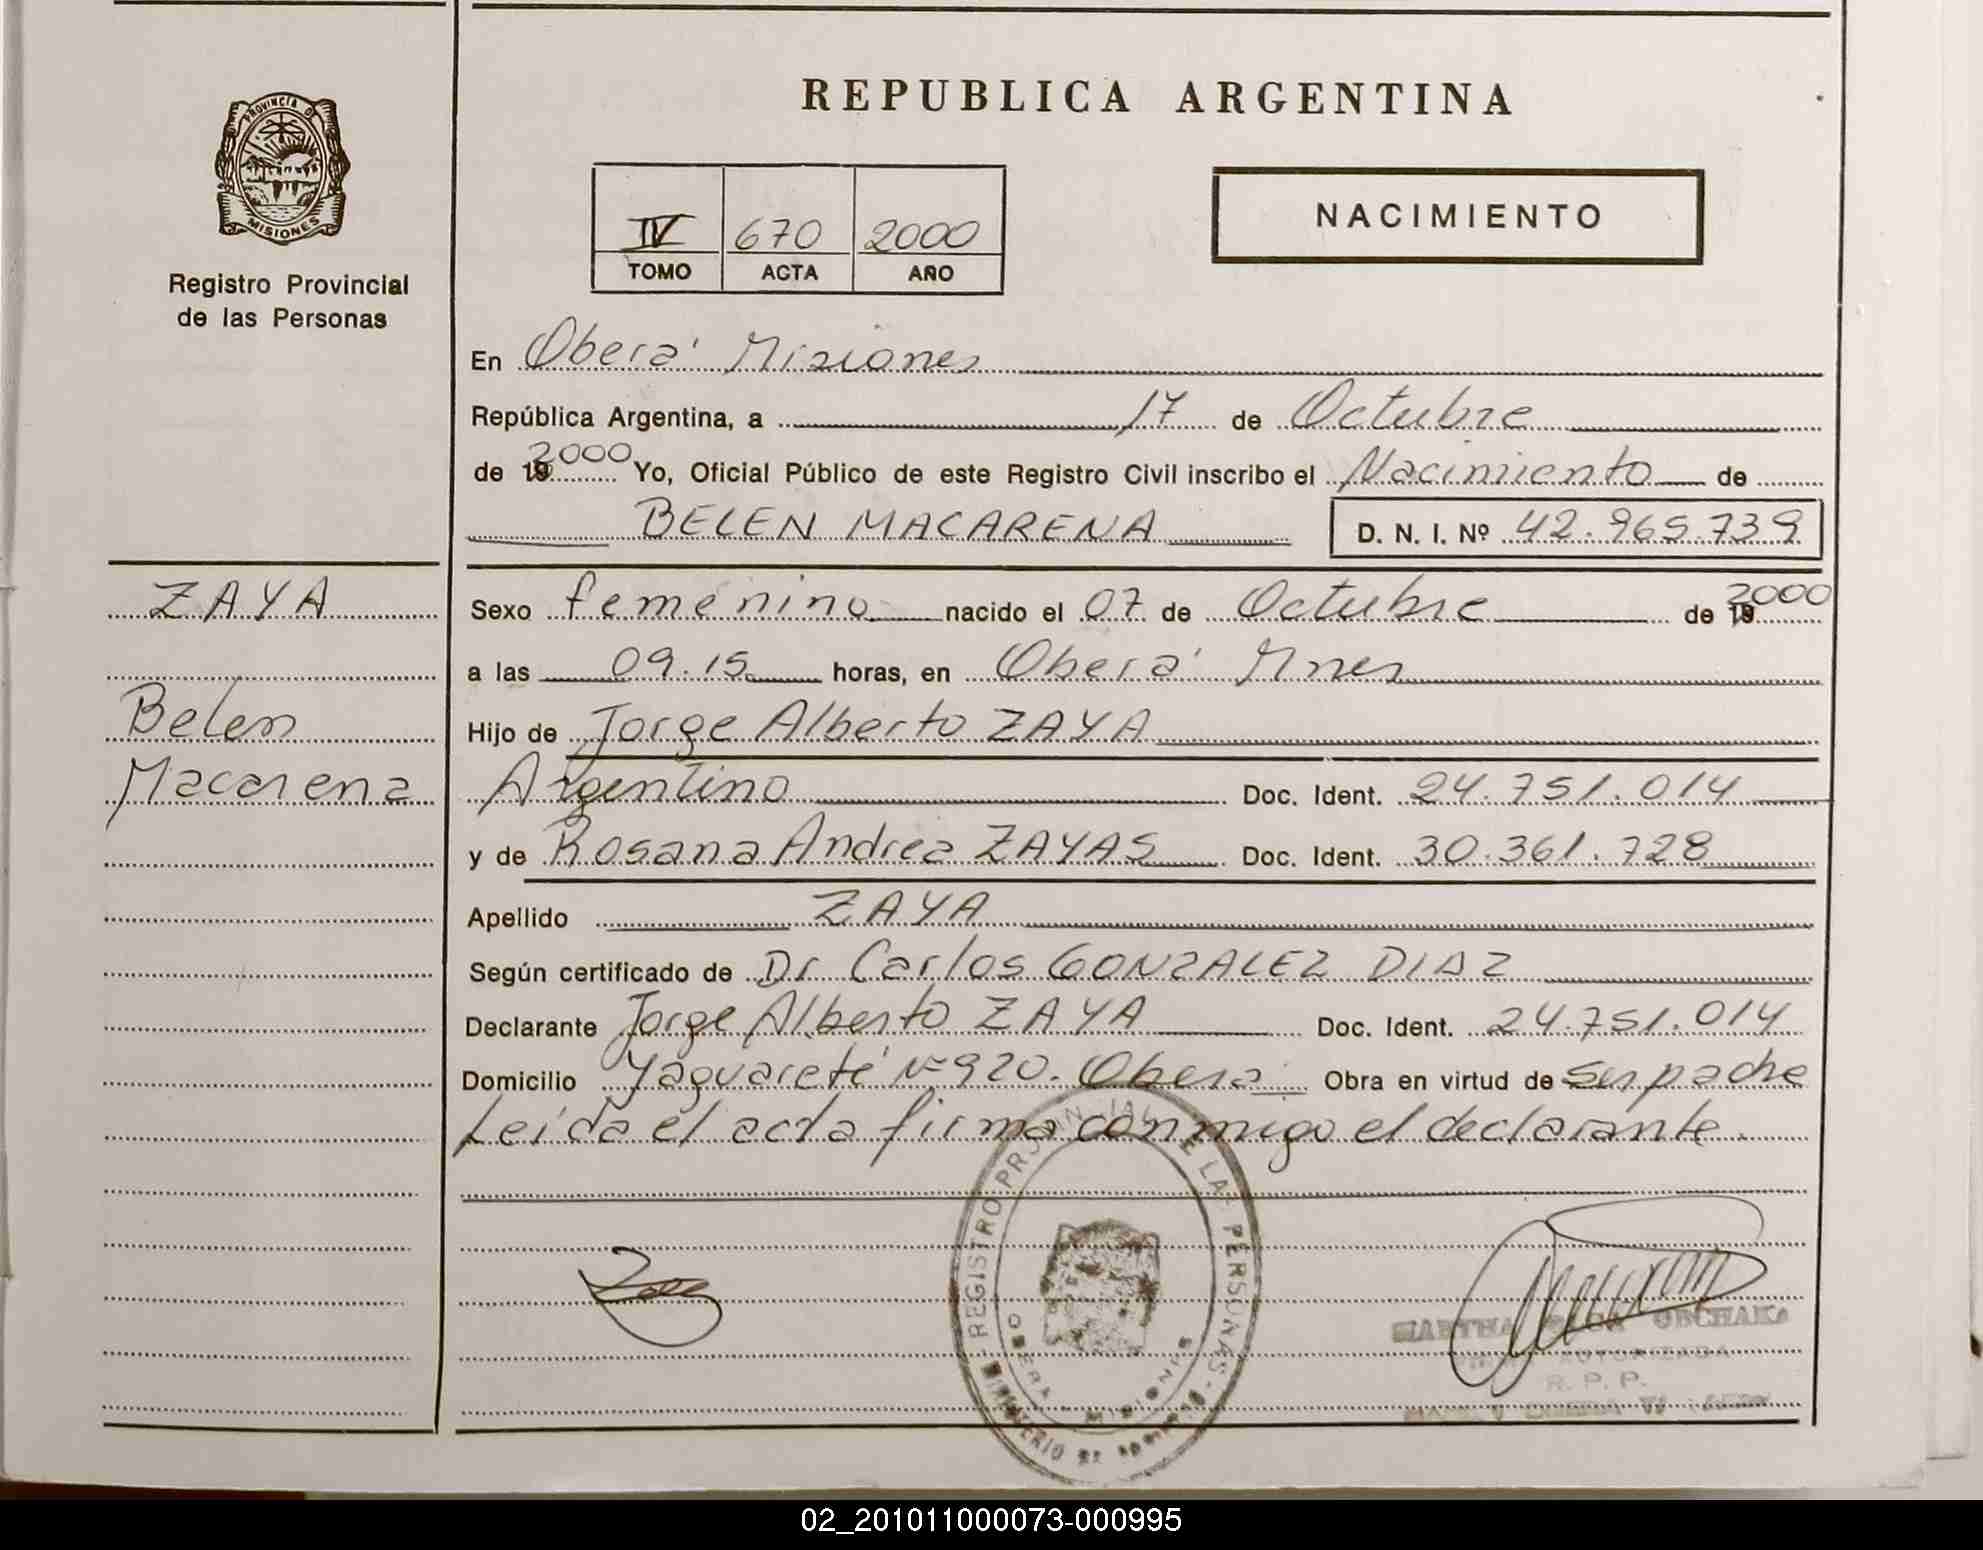 REPUBLICA ARGENTINA
PROVINCIA D
MISIONES
Registro Provincial
de las Personas
IV 670 2000
TOMO ACTA AÑO
NACIMIENTO
En Oberá Misiones
República Argentina, a 17 de Octubre
de 19 2000 Yo, Oficial Público de este Registro Civil inscribo el Nacimiento de
BELEN MACARENA D. N. I. Nº 42.965.739
ZAYA
Belen
Macarena
Sexo femenino nacido el 07 de Octubre de 19 2000
a las 09.15 horas, en Oberá Mnes
Hijo de Jorge Alberto ZAYA
Argentino Doc. Ident. 24.751.014
y de Rosana Andrea ZAYAS Doc. Ident. 30.361.728
Apellido ZAYA
Según certificado de Dr Carlos GONZALEZ DIAZ
Declarante Jorge Alberto ZAYA Doc. Ident. 24.751.014
Domicilio Yaguareté Nº 920. Oberá Obra en virtud de ser padre
Leída el acta firma conmigo el declarante.
REGISTRO PROVINCIAL DE LAS PERSONAS
OBERA - MISIONES
MINISTERIO DE
MARTHA ORCHAKA
AUTORIZADA
R. P. P.
02_201011000073-000995